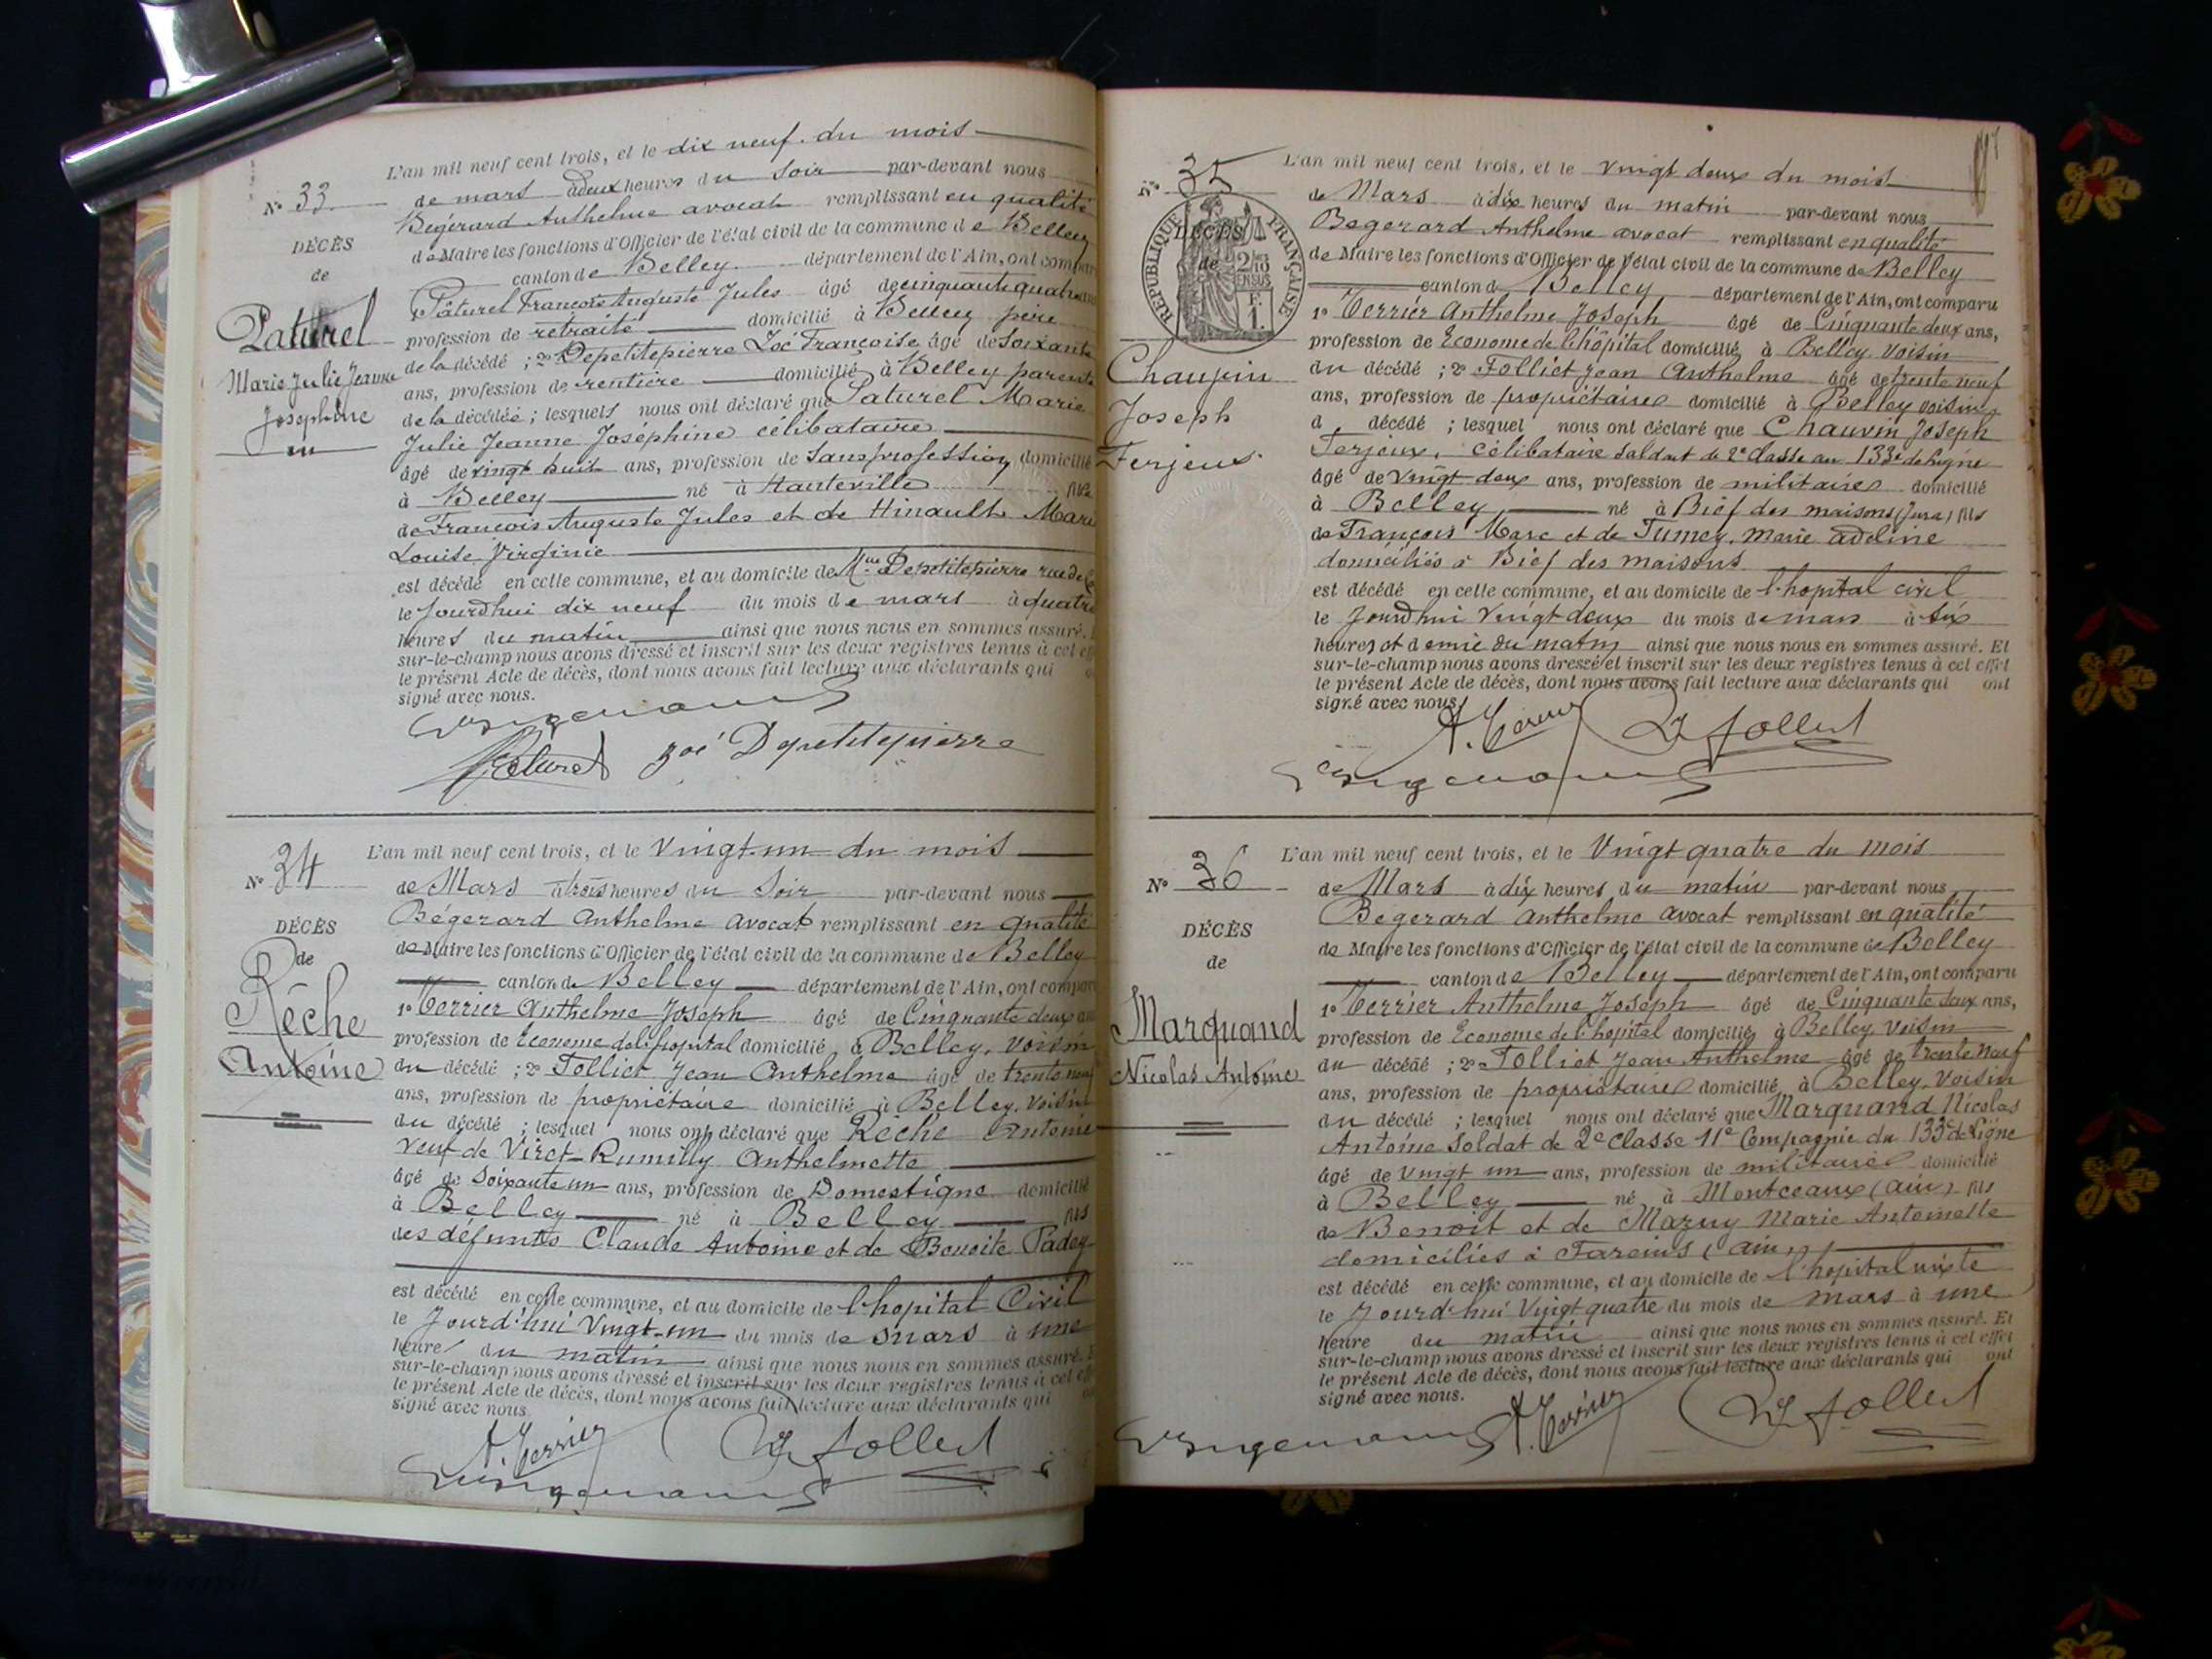 L'an mil neuf cent trois, et le dix neuf du mois
N° 33
de mars à deux heures du soir par-devant nous
Bégerard Anthelme avocat remplissant en qualité
DÉCÈS
de Maire les fonctions d'Officier de l'état civil de la commune de Belley
de
canton de Belley département de l'Ain, ont compar
Paturel
Marie Julie Jeanne
Joséphine
Paturel François Auguste Jules âgé de cinquante quatre ans
profession de retraité domicilié à Belley père
de la décédé ; 2° Depetitepierre Zoé Françoise âgé de soixante
ans, profession de rentière domicilié à Belley parente
de la décédée ; lesquels nous ont déclaré que Paturel Marie
Julie Jeanne Joséphine célibataire
âgé de vingt huit ans, profession de sans profession domicilié
à Belley né à Hauteville fille
de François Auguste Jules et de Hinault Marie
Louise Virginie
est décédé en cette commune, et au domicile de Mme Depetitepierre rue de
le Jourd'hui dix neuf du mois de mars à quatre
heures du matin ainsi que nous nous en sommes assuré.
sur-le-champ nous avons dressé et inscrit sur les deux registres tenus à cet eff
le présent Acte de décès, dont nous avons fait lecture aux déclarants qui
signé avec nous.
Paturel Zoé Depetitepierre
N° 34
L'an mil neuf cent trois, et le Vingt-un du mois
de Mars à trois heures du Soir par-devant nous
Bégerard Anthelme avocat remplissant en qualité
DÉCÈS
de Maire les fonctions d'Officier de l'état civil de la commune de Belley
de
canton de Belley département de l'Ain, ont compar
Rêche
Antoine
1° Terrier Anthelme Joseph âgé de Cinquante deux ans
profession de Econome de l'hopital domicilié à Belley, voisin
du décédé ; 2° Folliet Jean Anthelme âgé de trente neuf
ans, profession de propriétaire domicilié à Belley, voisin
du décédé ; lesquel nous ont déclaré que Reche Antoine
veuf de Viret-Rumilly Anthelmette
âgé de Soixante un ans, profession de Domestique domicilié
à Belley né à Belley fils
des défunts Claude Antoine et de Benoite Padey
est décédé en cette commune, et au domicile de l'hopital Civil
le Jourd'hui Vingt-un du mois de mars à une
heure du matin ainsi que nous nous en sommes assuré.
sur-le-champ nous avons dressé et inscrit sur les deux registres tenus à cet eff
le présent Acte de décès, dont nous avons fait lecture aux déclarants qui
signé avec nous
A. Terrier Folliet
N° 35
L'an mil neuf cent trois, et le vingt deux du mois
de Mars à dix heures du matin par-devant nous
Begerard Anthelme avocat remplissant en qualité
RÉPUBLIQUE FRANÇAISE
DÉCÈS
de
2/10 EN SUS
F.
1.
de Maire les fonctions d'Officier de l'état civil de la commune de Belley
canton d Belley département de l'Ain, ont comparu
Chauvin
Joseph
Ferjeux
1° Terrier Anthelme Joseph âgé de Cinquante deux ans,
profession de Econome de l'hôpital domicilié à Belley Voisin
du décédé ; 2° Folliet Jean Anthelme âgé de trente neuf
ans, profession de propriétaire domicilié à Belley voisin
d décédé ; lesquel nous ont déclaré que Chauvin Joseph
Ferjeux, célibataire soldat de 2e classe au 133e de ligne
âgé de Vingt-deux ans, profession de militaire domicilié
à Belley né à Bief des maisons (Jura) fils
de François Marc et de Tumey Marie Adeline
domiciliés à Bief des maisons
est décédé en cette commune, et au domicile de l'hopital civil
le Jourd'hui vingt deux du mois de mars à six
heures et demie du matin ainsi que nous nous en sommes assuré. Et
sur-le-champ nous avons dressé et inscrit sur les deux registres tenus à cet effet
le présent Acte de décès, dont nous avons fait lecture aux déclarants qui ont
signé avec nous
A. Terrier Folliet
N° 36
L'an mil neuf cent trois, et le Vingt quatre du mois
de Mars à dix heures du matin par-devant nous
Begerard Anthelme avocat remplissant en qualité
DÉCÈS
de Maire les fonctions d'Officier de l'état civil de la commune de Belley
de
canton de Belley département de l'Ain, ont comparu
Marquand
Nicolas Antoine
1° Terrier Anthelme Joseph âgé de Cinquante deux ans,
profession de Econome de l'hopital domicilié à Belley Voisin
du décédé ; 2° Folliet Jean Anthelme âgé de trente neuf
ans, profession de propriétaire domicilié à Belley, Voisin
du décédé ; lesquel nous ont déclaré que Marquand Nicolas
Antoine soldat de 2e classe 11e Compagnie du 133e de Ligne
âgé de vingt un ans, profession de militaire domicilié
à Belley né à Montceaux (Ain) fils
de Benoit et de Mazuy Marie Antoinette
domiciliés à Fareins (Ain)
est décédé en cette commune, et au domicile de l'hopital mixte
le Jourd'hui Vingt quatre du mois de mars à une
heure du matin ainsi que nous nous en sommes assuré. Et
sur-le-champ nous avons dressé et inscrit sur les deux registres tenus à cet effet
le présent Acte de décès, dont nous avons fait lecture aux déclarants qui ont
signé avec nous.
A. Terrier Folliet